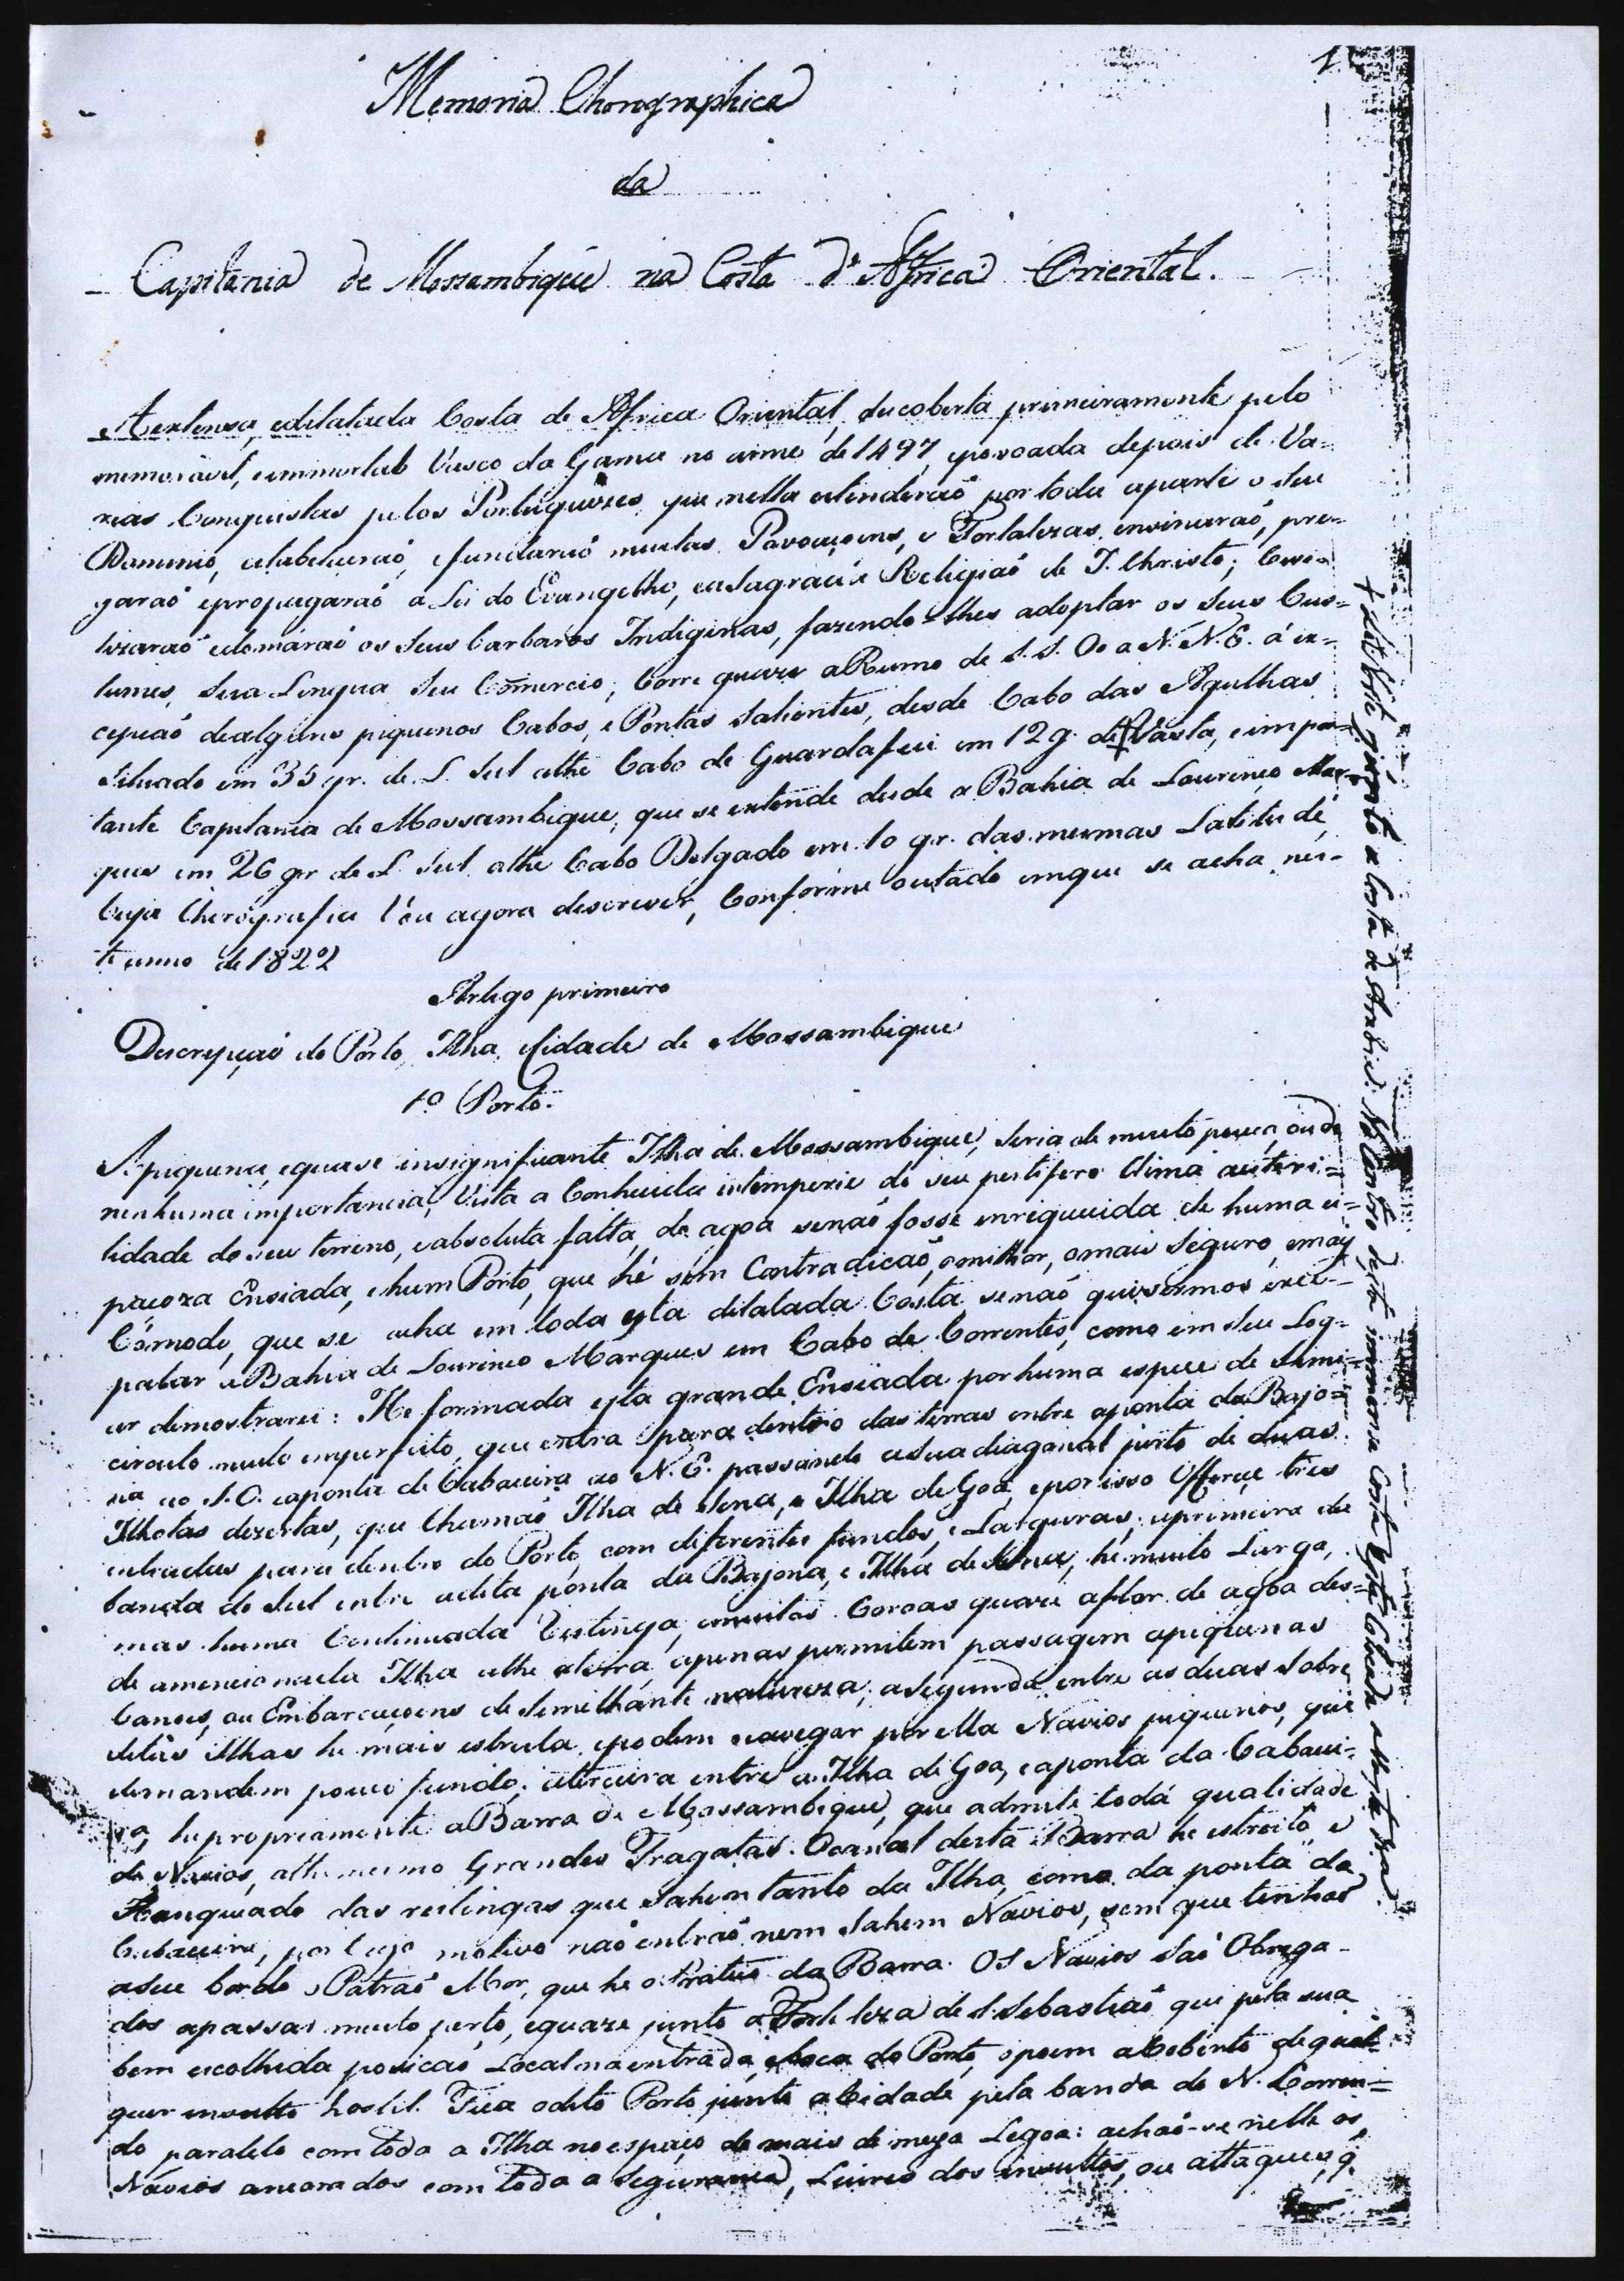 1
Memoria Chorographica
da
Capitania de Mossambique na Costa d'Africa Oriental.
A extensa, edilatada Costa de Africa Oriental, descoberta primeiramente pelo
memoravel, eimmortal Vasco da Gama no anno de 1497, povoada depois de Va=
rias Conquistas pelos Portuguezes, que nella estenderaõ por toda aparte o seu
Dominio, estabeleceraõ, efundaraõ muitas Povoaçoens, e Fortalezas, ensinaraõ, pre=
garaõ epropagaraõ a Lei do Evangelho, easagrada Religiaõ de J. Christo; Civi=
lizaraõ edomáraõ os seus barbaros Indiginas, fazendo-lhes adoptar os seus Cus=
tumes, sua Lingua seu Cõmercio; Corre quazi aRumo de S. S. O. a N. N. E. á ex=
cepçaõ dealguns piquenos Cabos, e Pontas salientes, desde Cabo das Agulhas
situado em 35 gr. de L. Sul athe Cabo de Guardafui em 12 g. de + Vasta, eimpor=
tante Capitania de Mossambique, que se extende desde a Bahia de Lourenço Mar=
ques em 26 gr de L Sul athe Cabo Delgado em 10 gr. das mesmas Latitude,
Cuja Chorografia Vou agora descrever, Conforme oestado emque se acha nes-
te anno de 1822
Artigo primeiro
Descripçaõ do Porto, Ilha, eCidade de Mossambique
1º Porto.
A piquena, equase insignificante Ilha de Mossambique, seria de muito pouca, ou de
nenhuma importancia, Vista a Conhecida intemperie do seu pestifero Clima aesteri=
lidade do seu terreno, eabsoluta falta de agoa senaõ fosse enriquecida de huma es=
paçoza Ensiada, ehum Porto, que hé sem Contradicaõ, omilhor, omais seguro, emais
Cõmodo, que se acha em toda esta dilatada Costa, senaõ quisermos exce-
patar aBahia de Lourenco Marques em Cabo de Correntes, como em seu Log=
ar demostrarei: He formada esta grande Ensiada por huma especie de Semi=
circulo muito imperfeito, que entra para dentro das terras entre aponta da Bajo=
na ao S. O. eaponta de Cabaceira ao N. E. passando asua diagonal junto de duas
Ilhotas dezertas, que Chamaõ Ilha de Sena, e Ilha de Goa, epor isso Offerece tres
entradas para dentro do Porto, com diferentes fundos, e Larguras; aprimeira da
banda do Sul entre adita ponta da Bajona, e Ilha de Sena, hé muito Larga,
mas huma Continuada Restinga, emuitas Coroas quazi aflor de agoa des=
de amencionada Ilha athe aterra, apenas permitem passagem apiquenas
Canoas, ou Embarcaçoens de Similhante natureza; asegunda entre as duas Sobre
ditas Ilhas he mais estreita, epodem navegar por ella Navios piquenos, que
demandem pouco fundo; aterceira entre a Ilha de Goa, eaponta da Cabacei=
ra, he propreamente aBarra de Mossambique, que admite toda qualidade
de Navios, athe mesmo Grandes Fragatas. Ocanal desta Barra he estreito e
Flanqueado das restingas que Sahem tanto da Ilha, como da ponta da
Cabaceira, por Cujo motivo naõ entraõ, nem Sahem Navios, sem que tenhaõ
aseu bordo oPatraõ Mor, que he o Pratico da Barra. Os Navios saõ Obriga-
dos apassar muito perto, equaze junto aFortaleza de S. Sebastiaõ que pela sua
bem escolhida posicaõ Local na entrada, eboca do Porto, opoem aCoberto de qual-
quer insulto hostil. Fica odito Porto junto aCidade pela banda do N. Corren=
do paralelo com toda a Ilha no espaço de mais de meya Legoa: achaõ-se nelle os
Navios ancorados com toda a Segurança, Livres dos insultos, ou attaques, q̃
+ Lat. Norte, junto a Costa de Arabia. No Centro desta immensa Costa Esta Colocada